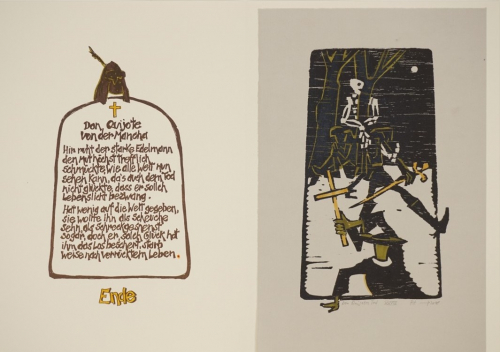 Don, Quijote
von der Mancha
Hir ruht der starke Edelmann
den Mut höchst trefflich
schmückte, wie alle Welt nun
sehen kann, da's auch dem Tod
nicht glückte, dass er solch
Lebenslicht bezwang.
Hat wenig auf die Welt gegeben,
sie wollte ihn als scheuche
sehn, als schreckgespenst
sogar, doch er, solch Glück hat
ihm das Los beschert, starb
weise nach verrücktem Leben.
Ende